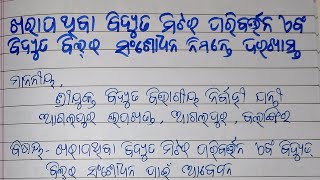 ଖରାପଥିବା ବିଦ୍ୟୁତ ମିଟର ପରିବର୍ତ୍ତନ ଏବଂ
ବିଦ୍ୟୁତ ବିଲ୍‌ର ସଂଶୋଧନ ନିମନ୍ତେ ଦରଖାସ୍ତ
ମାନନୀୟ
ଶ୍ରୀଯୁକ୍ତ ବିଦ୍ୟୁତ ବିଭାଗୀୟ ନିର୍ବାହୀ ଯନ୍ତ୍ରୀ
ଆଗଲପୁର ଉପଖଣ୍ଡ, ଆଗଲପୁର, ବଲାଙ୍ଗିର
ବିଷୟ:- ଖରାପଥିବା ବିଦ୍ୟୁତ ମିଟର ପରିବର୍ତ୍ତନ ଏବଂ ବିଦ୍ୟୁତ୍
ବିଲ୍‌ର ସଂଶୋଧନ ପାଇଁ ଆବେଦନ